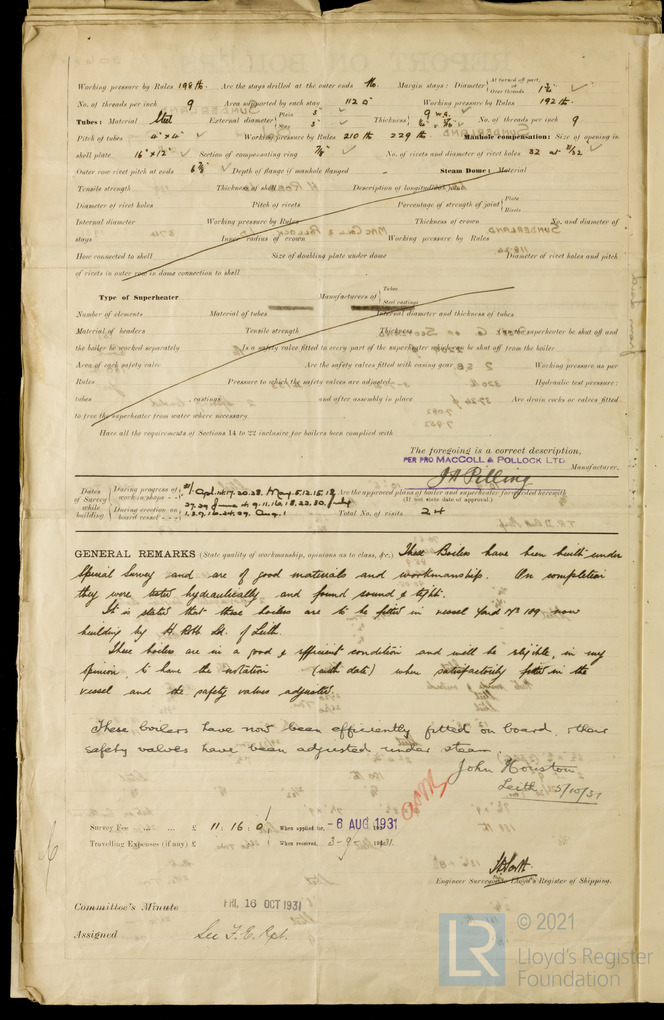 Working pressure by Rules 198 lb. Are the stays drilled at the outer ends No. Margin stays: Diameter { At turned off part, or Over threads
No. of threads per inch 9 Area supported by each stay 112 □" Working pressure by Rules 192 lb.
Tubes: Material Steel External diameter { Plain 3" Stay 3" Thickness { 9 W.G. No. of threads per inch 9
Pitch of tubes 4" x 4" Working pressure by Rules 210 lb 229 lb. Manhole compensation: Size of opening in
shell plate 16" x 12" Section of compensating ring 7/8" No. of rivets and diameter of rivet holes 32 at 31/32
Outer row rivet pitch at ends Depth of flange if manhole flanged - Steam Dome: Material
Tensile strength Thickness of shell Description of longitudinal joint
Diameter of rivet holes Pitch of rivets Percentage of strength of joint { Plate Rivets
Internal diameter Working pressure by Rules Thickness of crown No. and diameter of
stays Inner radius of crown Working pressure by Rules
How connected to shell Size of doubling plate under dome Diameter of rivet holes and pitch
of rivets in outer row in dome connection to shell
Type of Superheater Manufacturers of { Tubes Steel castings
Number of elements Material of tubes Internal diameter and thickness of tubes
Material of headers Tensile strength Thickness Can the superheater be shut off and
the boiler be worked separately Is a safety valve fitted to every part of the superheater which can be shut off from the boiler
Area of each safety valve Are the safety valves fitted with easing gear Working pressure as per
Rules Pressure to which the safety valves are adjusted Hydraulic test pressure:
tubes , castings and after assembly in place Are drain cocks or valves fitted
to free the superheater from water where necessary
Have all the requirements of Sections 14 to 22 inclusive for boilers been complied with
The foregoing is a correct description,
PER PRO MACCOLL & POLLOCK LTD
J H Pilling Manufacturer.
Dates of Survey while building { During progress of work in shops - - 1931 April 14.17.20.28. May 5.12.15.18 Are the approved plans of boiler and superheater forwarded herewith
(If not state date of approval.)
During erection on board vessel - - - Total No. of visits 24
GENERAL REMARKS (State quality of workmanship, opinions as to class, &c.) These Boilers have been built under
Special Survey and are of good materials and workmanship. On completion
they were tested hydraulically, and found sound & tight.
It is stated that these boilers are to be fitted in vessel Yard No 189 now
building by H Robb Ld. of Leith.
These boilers are in a good & efficient condition and will be eligible, in my
opinion, to have the notation (with date) when satisfactorily fitted in the
vessel and the safety valves adjusted.
These boilers have now been efficiently fitted on board, & their
safety valves have been adjusted under steam.
John Houston
Leith 5/10/31
Survey Fee ... ... £ 11 : 16 : 0 When applied for, -6 AUG 1931
Travelling Expenses (if any) £ When received, 3-9 1931.
Engineer Surveyor to Lloyd's Register of Shipping.
Committee's Minute FRI. 16 OCT 1931
Assigned See F.E. Rpt.
LR © 2021
Lloyd's Register
Foundation